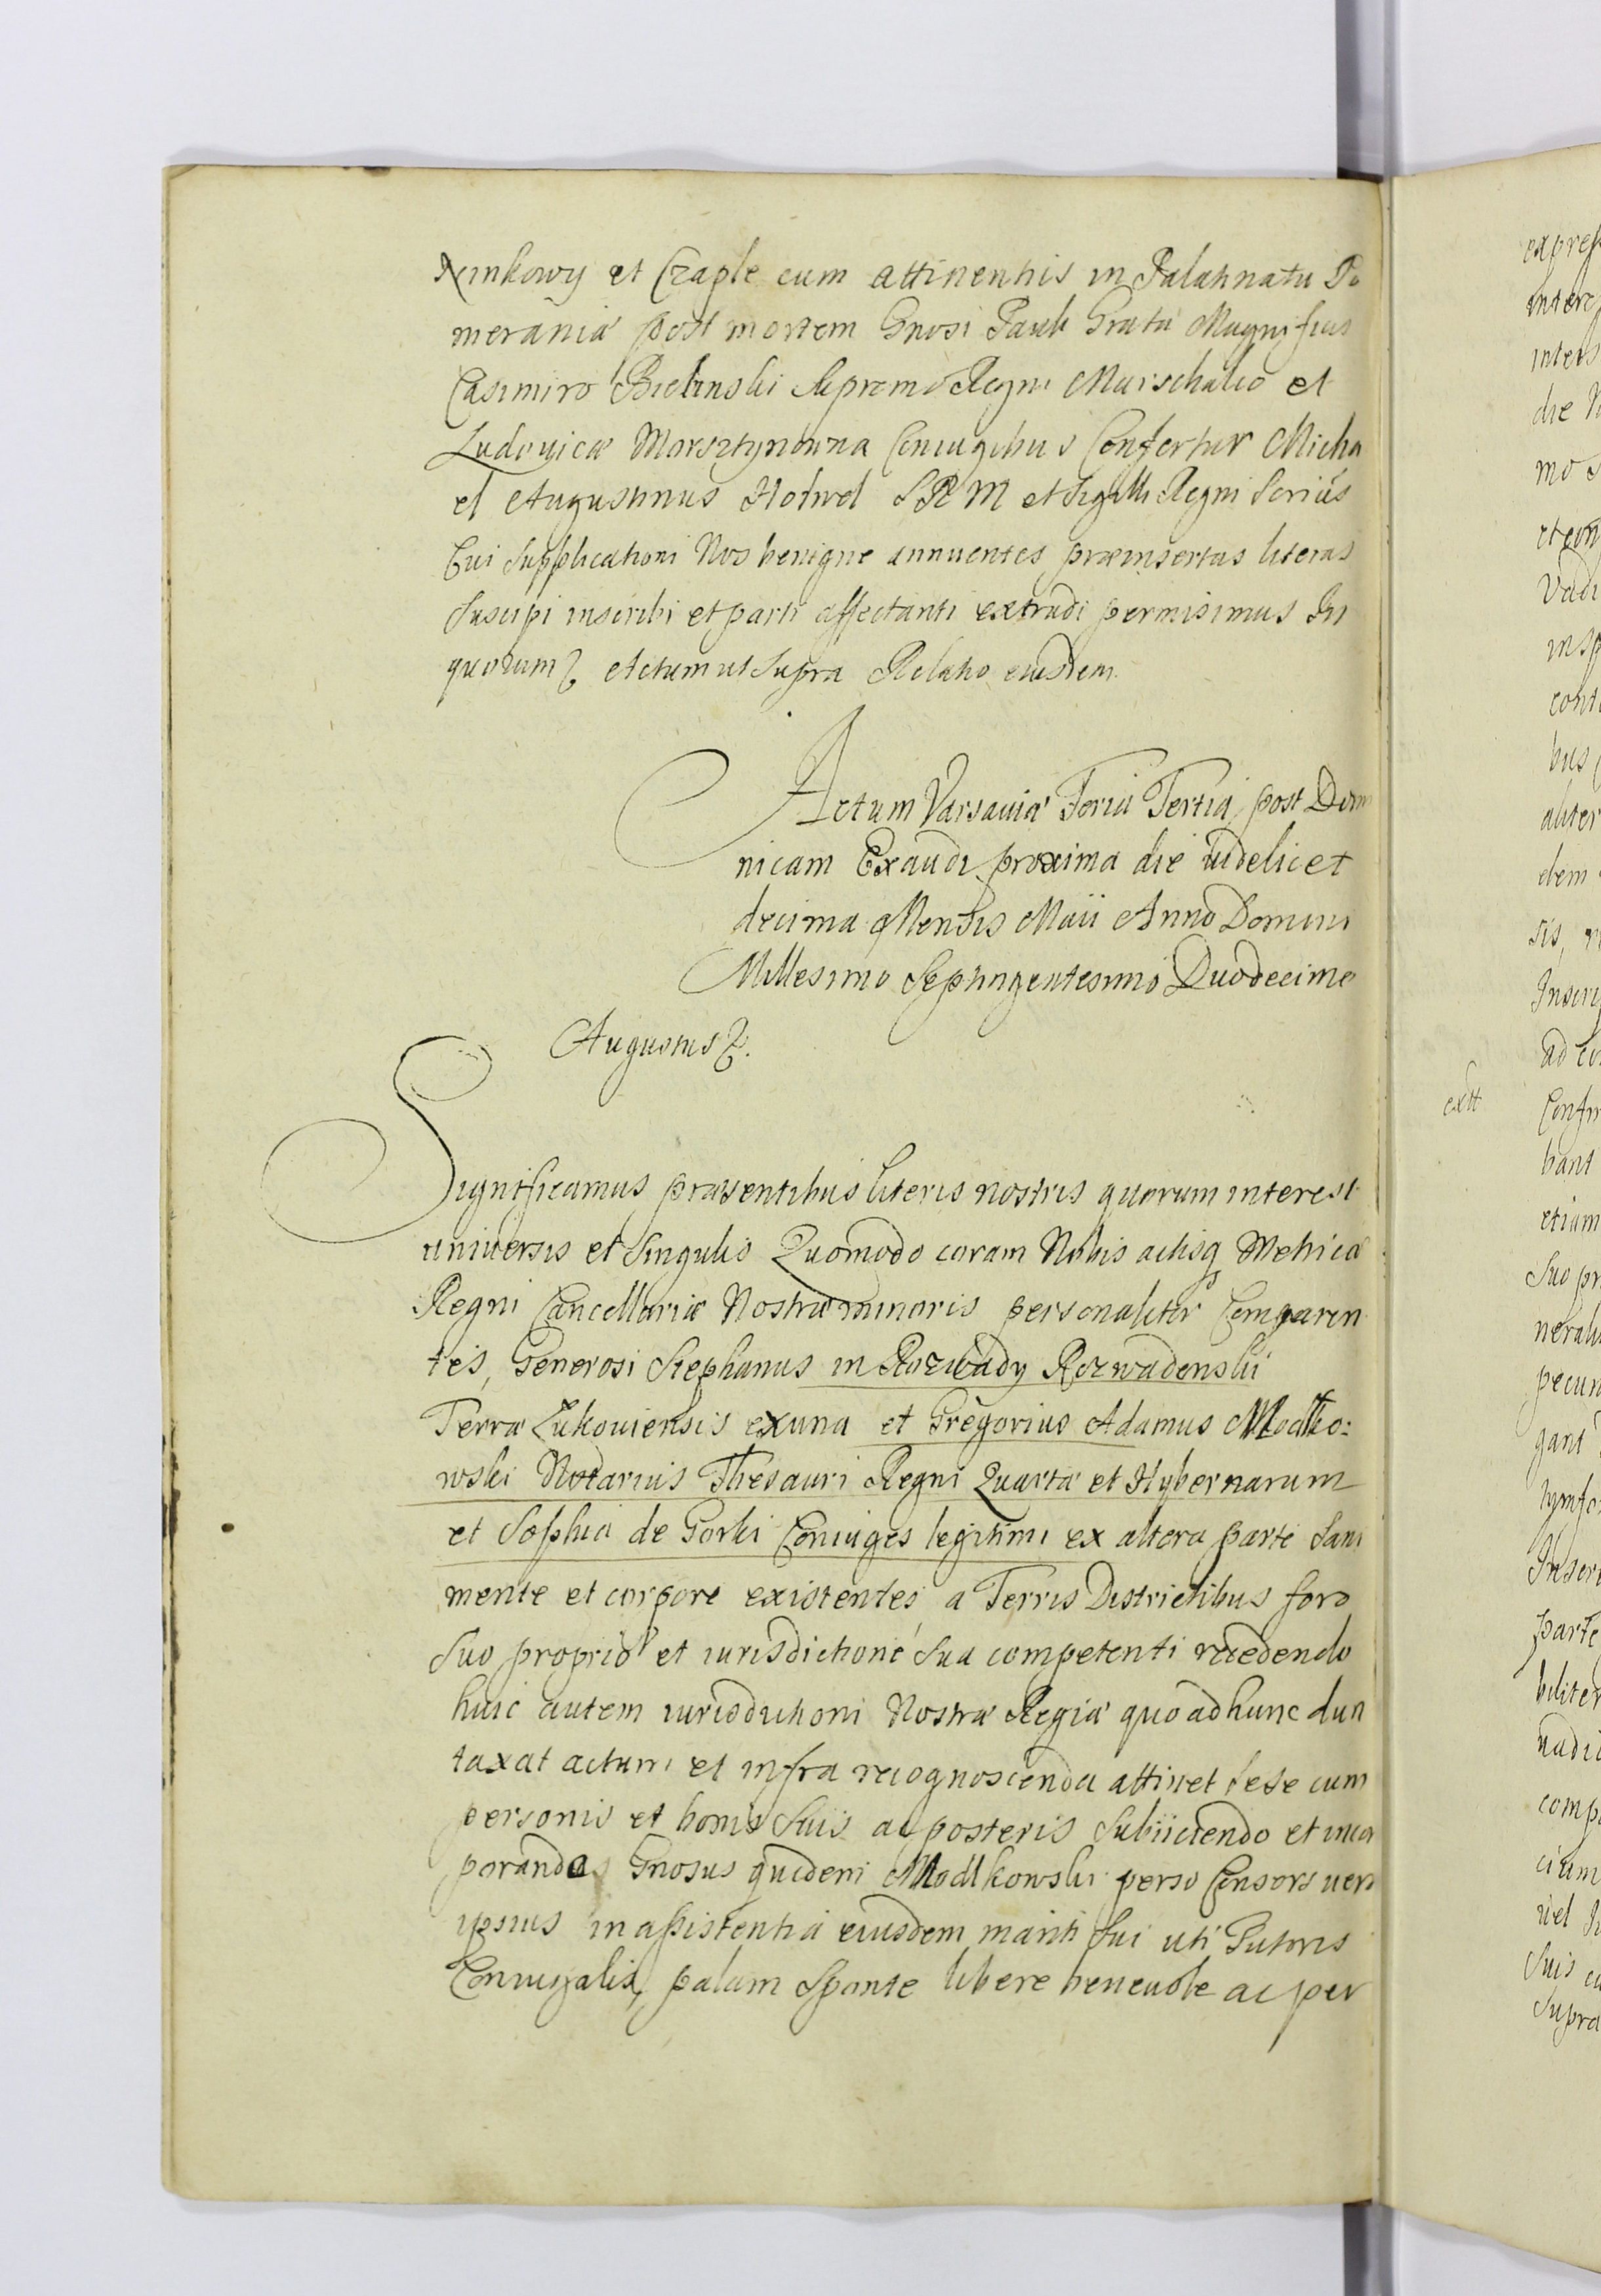 Ninkowy et Czaple cum attinentiis in Palatinatu Po
meraniæ post mortem Gnosi Pauli Grata Magnificis
Casimiro Bielinski Supremo Regni Marschalco et
Ludovica Morsztynowna Coniugibus Confertur Micha
el Augustinus Hotwel S R M et Sigilli Regni Scriùs
Cui Supplicationi Nos benigne annuentes præinsertas literas
Suscipi inscribi et parti affectanti extradi permisimus In
quorum Actum ut Supra Relatio eiusdem
Actum Varsaviæ Feria Tertia post Domi
nicam Exaudi proxima die videlicet
decima Mensis Maii Anno Domini
Millesimo Septingentesimo Duodecimo
Augustus
Significamus præsentibus literis nostris quorum interest
universis et Singulis Quomodo coram Nobis actisq Metricæ
Regni Cancellariæ Nostræ minoris personaliter Comparen
tes, Generosi Stephanus in Rozwady Rozwadenski
Terræ Lukoviensis ex una et Gregorius Adamus Modlko:
wski Notarius Thesauri Regni Quartæ et Hybernarum
et Sophia de Gorki Coniuges legitimi ex altera parte Sani
mente et corpore existentes a Terris Districtibus foro
Suo proprio et iurisdictione Sua competenti recedendo
huic autem iurisdictioni Nostræ Regiæ quo ad hunc dun
taxat actum et infra recognoscenda attinet sese cum
personis et bonis Suis ac posteris Subiiciendo et incor
porando Gnosus quidem Modlkowski per se Consors vero
ipsius in assistentia eiusdem mariti Sui uti Tutoris
Coniugalis, palam Sponte libere benevole ac per
extt